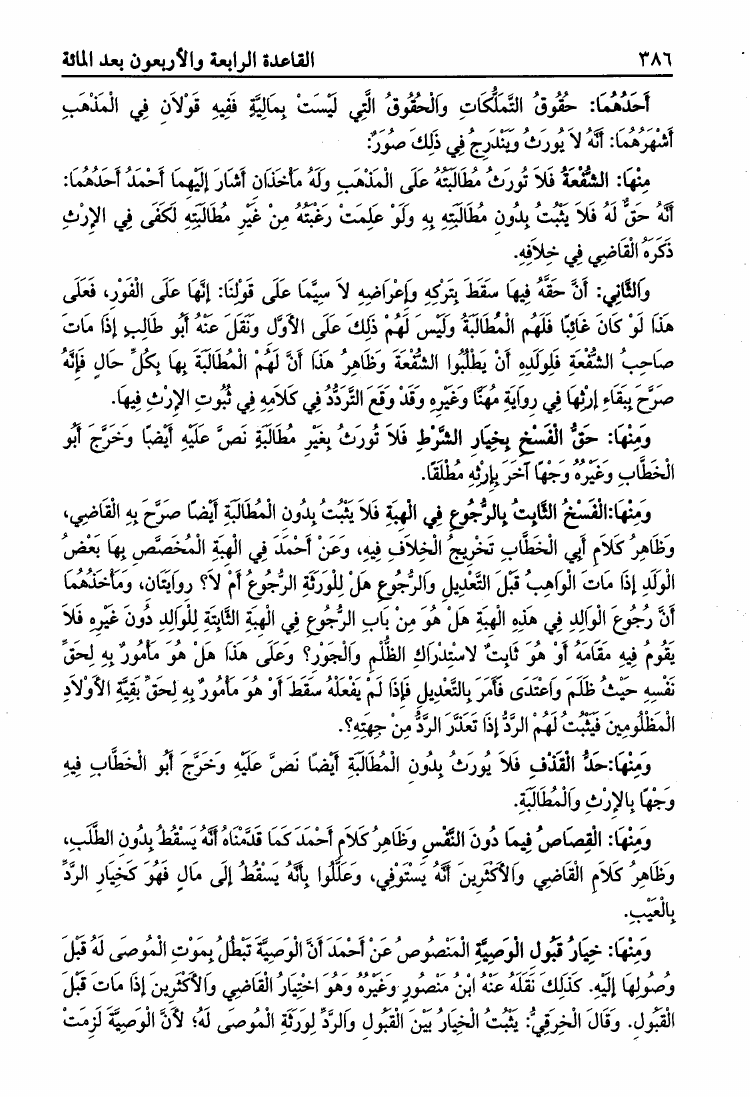 ٣٨٦ القاعدة الرابعة والأربعون بعد المائة
أَحَدُهُمَا: حُقُوقُ التَّمَلُّكَاتِ وَالْحُقُوقُ الَّتِي لَيْسَتْ بِمَالِيَّةٍ فَفِيهِ قَوْلَانِ فِي الْمَذْهَبِ
أَشْهَرُهُمَا: أَنَّهُ لَا يُورَثُ وَيَنْدَرِجُ فِي ذَلِكَ صُوَرٌ:
مِنْهَا: الشُّفْعَةُ فَلَا تُورَثُ مُطَالَبَتُهُ عَلَى الْمَذْهَبِ وَلَهُ مَأْخَذَانِ أَشَارَ إِلَيْهِمَا أَحْمَدُ أَحَدُهُمَا:
أَنَّهُ حَقٌّ لَهُ فَلَا يَثْبُتُ بِدُونِ مُطَالَبَتِهِ بِهِ وَلَوْ عَلِمَتْ رَغْبَتُهُ مِنْ غَيْرِ مُطَالَبَتِهِ لَكَفَى فِي الإِرْثِ
ذَكَرَهُ الْقَاضِي فِي خِلَافِهِ.
وَالثَّانِي: أَنَّ حَقَّهُ فِيهَا سَقَطَ بِتَرْكِهِ وَإِعْرَاضِهِ لَا سِيَّمَا عَلَى قَوْلِنَا: إِنَّهَا عَلَى الْفَوْرِ، فَعَلَى
هَذَا لَوْ كَانَ غَائِبًا فَلَهُمُ الْمُطَالَبَةُ وَلَيْسَ لَهُمْ ذَلِكَ عَلَى الأَوَّلِ وَنَقَلَ عَنْهُ أَبُو طَالِبٍ إِذَا مَاتَ
صَاحِبُ الشُّفْعَةِ فَلِوَلَدِهِ أَنْ يَطْلُبُوا الشُّفْعَةَ وَظَاهِرُ هَذَا أَنَّ لَهُمُ الْمُطَالَبَةَ بِهَا بِكُلِّ حَالٍ فَإِنَّهُ
صَرَّحَ بِبَقَاءِ إِرْثِهَا فِي رِوَايَةِ مُهَنَّا وَغَيْرِهِ وَقَدْ وَقَعَ التَّرَدُّدُ فِي كَلَامِهِ فِي ثُبُوتِ الإِرْثِ فِيهَا.
وَمِنْهَا: حَقُّ الْفَسْخِ بِخِيَارِ الشَّرْطِ فَلَا تُورَثُ بِغَيْرِ مُطَالَبَةٍ نَصَّ عَلَيْهِ أَيْضًا وَخَرَّجَ أَبُو
الْخَطَّابِ وَغَيْرُهُ وَجْهًا آخَرَ بِإِرْثِهِ مُطْلَقًا.
وَمِنْهَا:الْفَسْخُ الثَّابِتُ بِالرُّجُوعِ فِي الْهِبَةِ فَلَا يَثْبُتُ بِدُونِ الْمُطَالَبَةِ أَيْضًا صَرَّحَ بِهِ الْقَاضِي،
وَظَاهِرُ كَلَامِ أَبِي الْخَطَّابِ تَخْرِيجُ الْخِلَافِ فِيهِ، وَعَنْ أَحْمَدَ فِي الْهِبَةِ الْمُخَصَّصِ بِهَا بَعْضُ
الْوَلَدِ إِذَا مَاتَ الْوَاهِبُ قَبْلَ التَّعْدِيلِ وَالرُّجُوعِ هَلْ لِلْوَرَثَةِ الرُّجُوعُ أَمْ لَا؟ رِوَايَتَانِ، وَمَأْخَذُهُمَا
أَنَّ رُجُوعَ الْوَالِدِ فِي هَذِهِ الْهِبَةِ هَلْ هُوَ مِنْ بَابِ الرُّجُوعِ فِي الْهِبَةِ الثَّابِتَةِ لِلْوَالِدِ دُونَ غَيْرِهِ فَلَا
يَقُومُ فِيهِ مَقَامَهُ أَوْ هُوَ ثَابِتٌ لِاسْتِدْرَاكِ الظُّلْمِ وَالْجَوْرِ؟ وَعَلَى هَذَا هَلْ هُوَ مَأْمُورٌ بِهِ لِحَقِّ
نَفْسِهِ حَيْثُ ظَلَمَ وَاعْتَدَى فَأَمَرَ بِالتَّعْدِيلِ فَإِذَا لَمْ يَفْعَلْهُ سَقَطَ أَوْ هُوَ مَأْمُورٌ بِهِ لِحَقِّ بَقِيَّةِ الأَوْلَادِ
الْمَظْلُومِينَ فَيَثْبُتُ لَهُمُ الرَّدُّ إِذَا تَعَذَّرَ الرَّدُّ مِنْ جِهَتِهِ؟.
وَمِنْهَا:حَدُّ الْقَذْفِ فَلَا يُورَثُ بِدُونِ الْمُطَالَبَةِ أَيْضًا نَصَّ عَلَيْهِ وَخَرَّجَ أَبُو الْخَطَّابِ فِيهِ
وَجْهًا بِالإِرْثِ وَالْمُطَالَبَةِ.
وَمِنْهَا: الْقِصَاصُ فِيمَا دُونَ النَّفْسِ وَظَاهِرُ كَلَامِ أَحْمَدَ كَمَا قَدَّمْنَاهُ أَنَّهُ يَسْقُطُ بِدُونِ الطَّلَبِ،
وَظَاهِرُ كَلَامِ الْقَاضِي وَالأَكْثَرِينَ أَنَّهُ يَسْتَوْفِي، وَعَلَّلُوا بِأَنَّهُ يَسْقُطُ إِلَى مَالٍ فَهُوَ كَخِيَارِ الرَّدِّ
بِالْعَيْبِ.
وَمِنْهَا: خِيَارُ قُبُولِ الْوَصِيَّةِ الْمَنْصُوصُ عَنْ أَحْمَدَ أَنَّ الْوَصِيَّةَ تَبْطُلُ بِمَوْتِ الْمُوصَى لَهُ قَبْلَ
وُصُولِهَا إِلَيْهِ. كَذَلِكَ نَقَلَهُ عَنْهُ ابْنُ مَنْصُورٍ وَغَيْرُهُ وَهُوَ اخْتِيَارُ الْقَاضِي وَالأَكْثَرِينَ إِذَا مَاتَ قَبْلَ
الْقَبُولِ. وَقَالَ الْخِرَقِيُّ: يَثْبُتُ الْخِيَارُ بَيْنَ الْقَبُولِ وَالرَّدِّ لِوَرَثَةِ الْمُوصَى لَهُ؛ لأَنَّ الْوَصِيَّةَ لَزِمَتْ